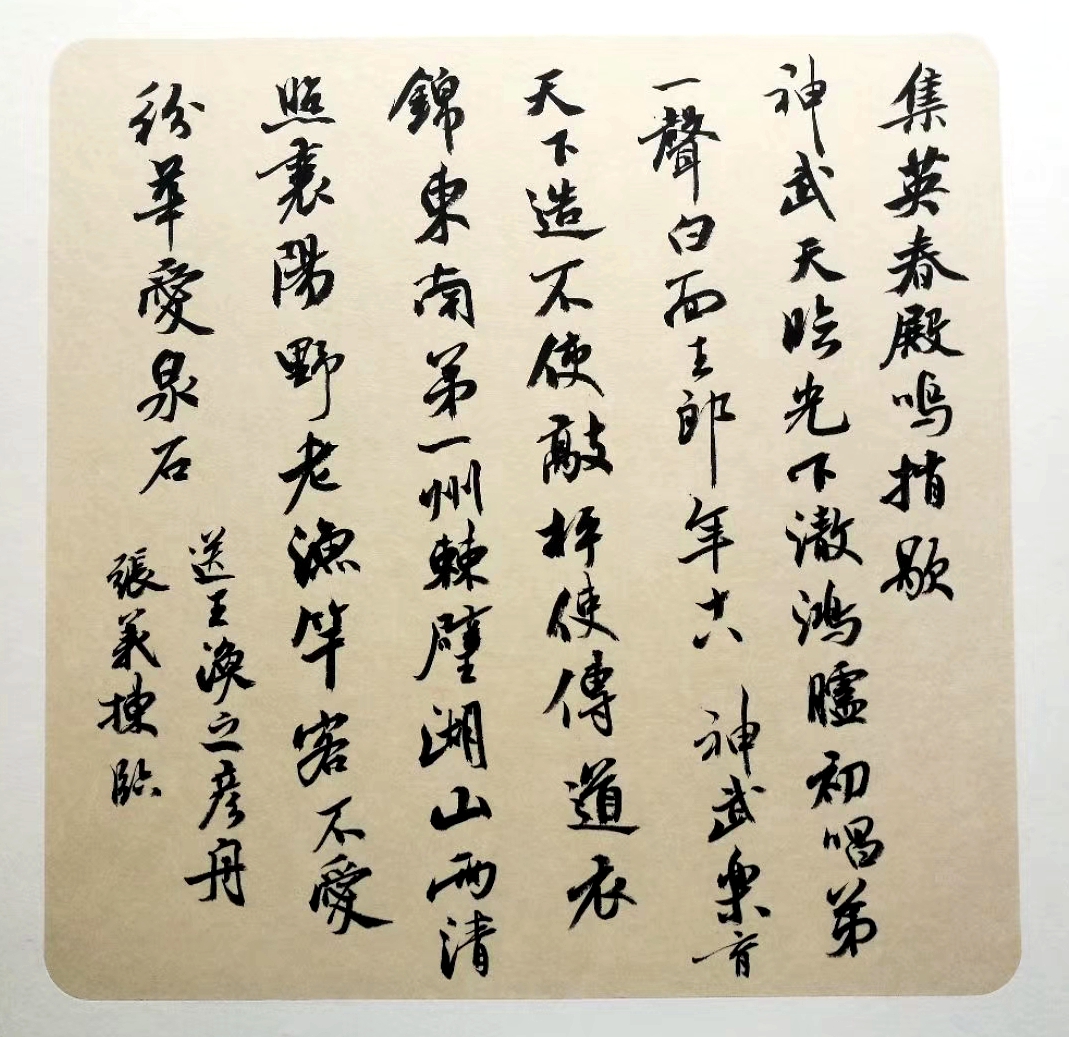 集英春殿鳴捎歇
神武天臨光下澈鴻臚初唱弟
一聲白面玉郎年十六神武樂育
天下造不使敲枰使傳道衣
錦東南第一州棘壁湖山兩清
照襄陽野老漁竿客不愛
紛華愛泉石
送王渙之彥舟
張義棟臨